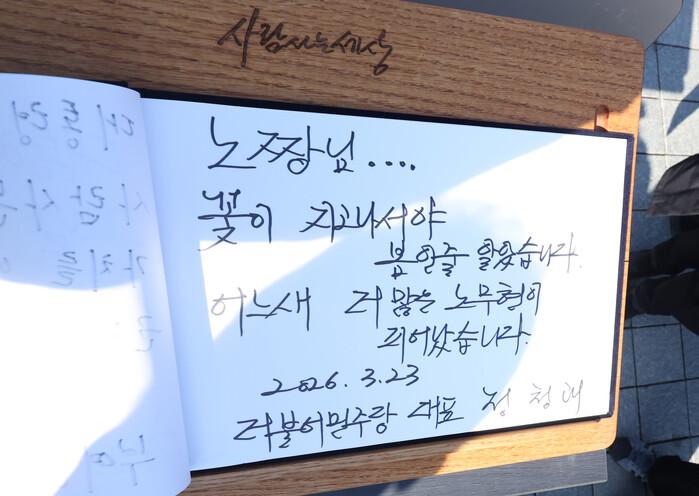 사람사는세상
노짱님....
꽃이 지고나서야
봄인줄 알았습니다.
어느새 더 많은 노무현이
피어났습니다.
2026. 3.23
더불어민주당 대표 정청래